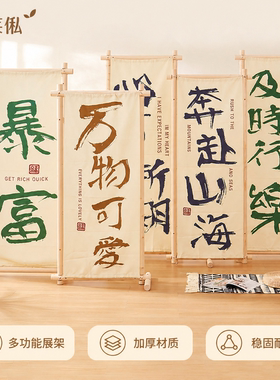 暴富
GET RICH QUICK
万物可爱
EVERYTHING IS LOVELY
HAVE EXPECTATIONS
IN MY HEART
奔赴山海
RUSH TO THE
MOUNTAINS
AND SEAS
及時行樂
多功能展架
加厚材质
稳固耐